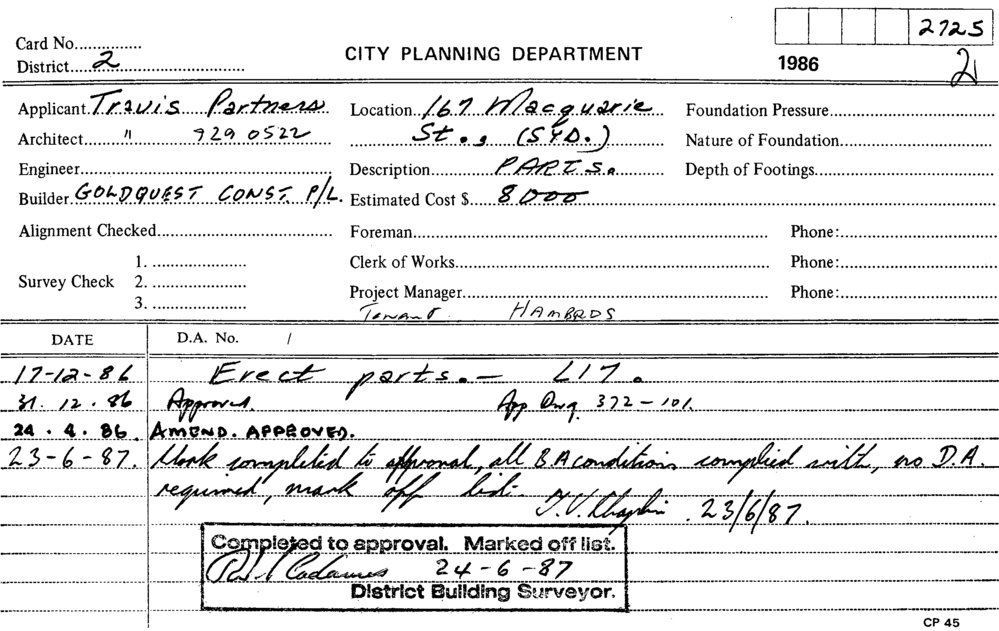 2725
Card No.
CITY PLANNING DEPARTMENT
District 2
1986
2
Applicant Travis Partners Location 167 Macquarie Foundation Pressure
Architect " 929 0522 St., (SYD.) Nature of Foundation
Engineer Description PARTS. Depth of Footings
Builder GOLDQUEST CONST. P/L. Estimated Cost $ 8000
Alignment Checked Foreman Phone:
1. Clerk of Works Phone:
Survey Check 2.
3. Project Manager Phone:
Tenant HAMBROS
DATE D.A. No. /
17-12-86 Erect parts. - L17.
31.12.86 Approved. App Dwg 372-101.
24.4.86. AMEND. APPROVED.
23-6-87. Work completed to approval, all B.A conditions complied with, no D.A.
required, mark off list. 23/6/87.
Completed to approval. Marked off list.
24-6-87
District Building Surveyor.
CP 45